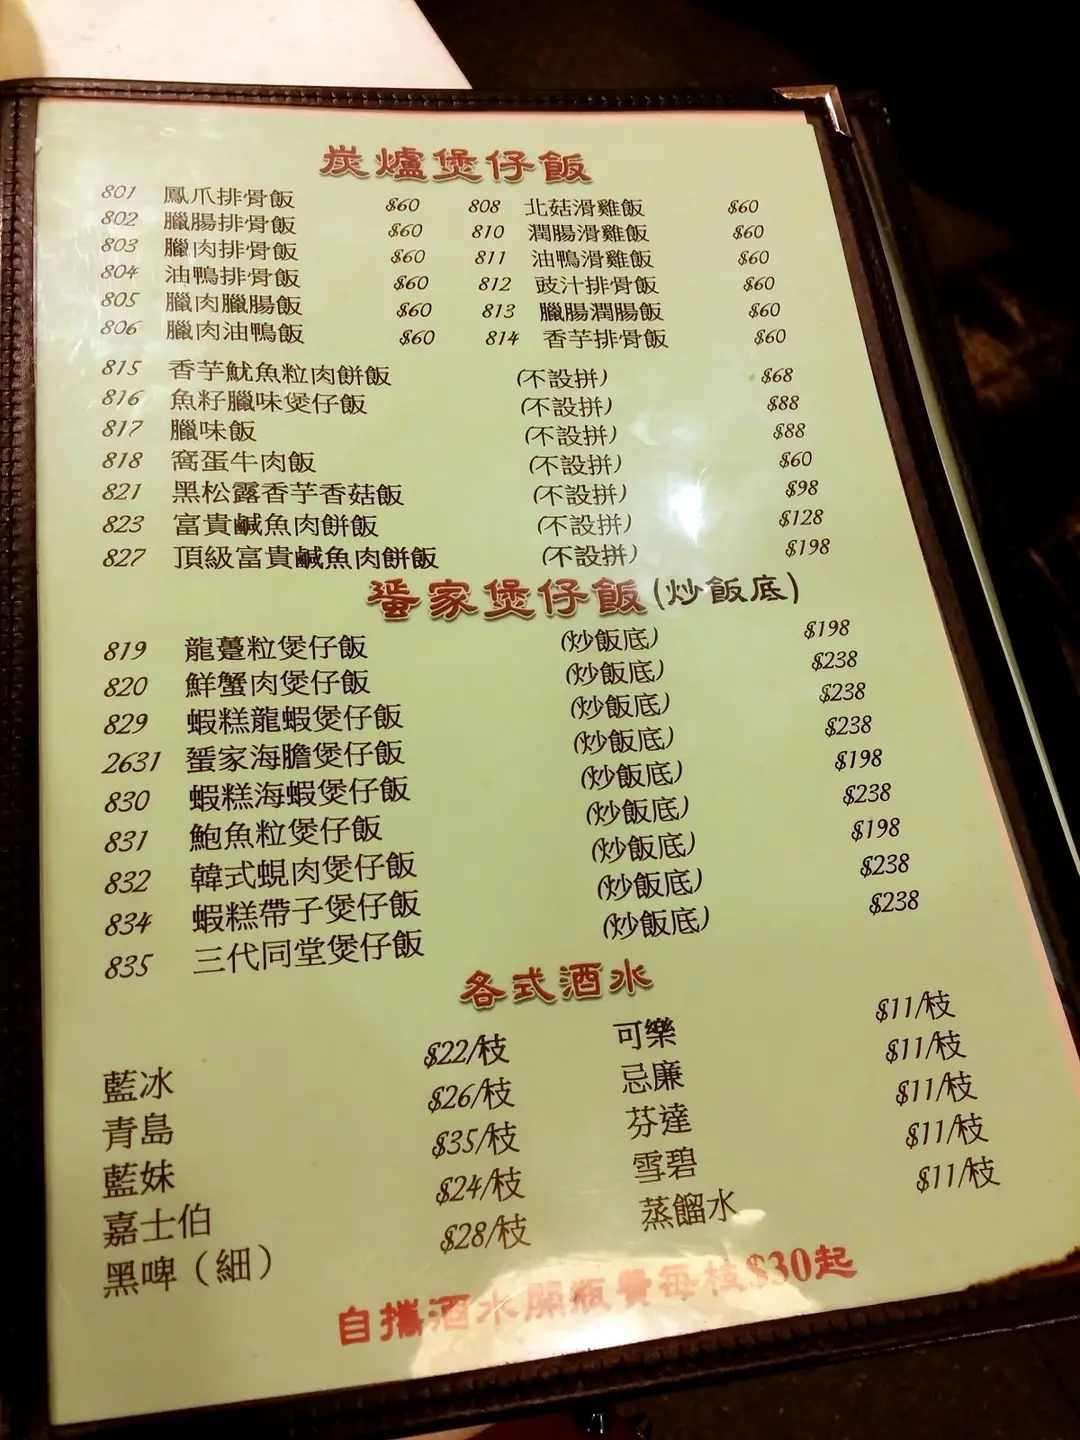 炭爐煲仔飯
801 鳳爪排骨飯 $60 808 北菇滑雞飯 $60
802 臘腸排骨飯 $60 810 潤腸滑雞飯 $60
803 臘肉排骨飯 $60 811 油鴨滑雞飯 $60
804 油鴨排骨飯 $60 812 豉汁排骨飯 $60
805 臘肉臘腸飯 $60 813 臘腸潤腸飯 $60
806 臘肉油鴨飯 $60 814 香芋排骨飯 $60
815 香芋魷魚粒肉餅飯 (不設拼) $68
816 魚籽臘味煲仔飯 (不設拼) $88
817 臘味飯 (不設拼) $88
818 窩蛋牛肉飯 (不設拼) $60
821 黑松露香芋香菇飯 (不設拼) $98
823 富貴鹹魚肉餅飯 (不設拼) $128
827 頂級富貴鹹魚肉餅飯 (不設拼) $198
蜑家煲仔飯(炒飯底)
819 龍躉粒煲仔飯 (炒飯底) $198
820 鮮蟹肉煲仔飯 (炒飯底) $238
829 蝦糕龍蝦煲仔飯 (炒飯底) $238
2631 蜑家海膽煲仔飯 (炒飯底) $238
830 蝦糕海蝦煲仔飯 (炒飯底) $198
831 鮑魚粒煲仔飯 (炒飯底) $238
832 韓式蜆肉煲仔飯 (炒飯底) $198
834 蝦糕帶子煲仔飯 (炒飯底) $238
835 三代同堂煲仔飯 (炒飯底) $238
各式酒水
藍冰 $22/枝 可樂 $11/枝
青島 $26/枝 忌廉 $11/枝
藍妹 $35/枝 芬達 $11/枝
嘉士伯 $24/枝 雪碧 $11/枝
黑啤（細） $28/枝 蒸餾水 $11/枝
自攜酒水開瓶費每枝$30起